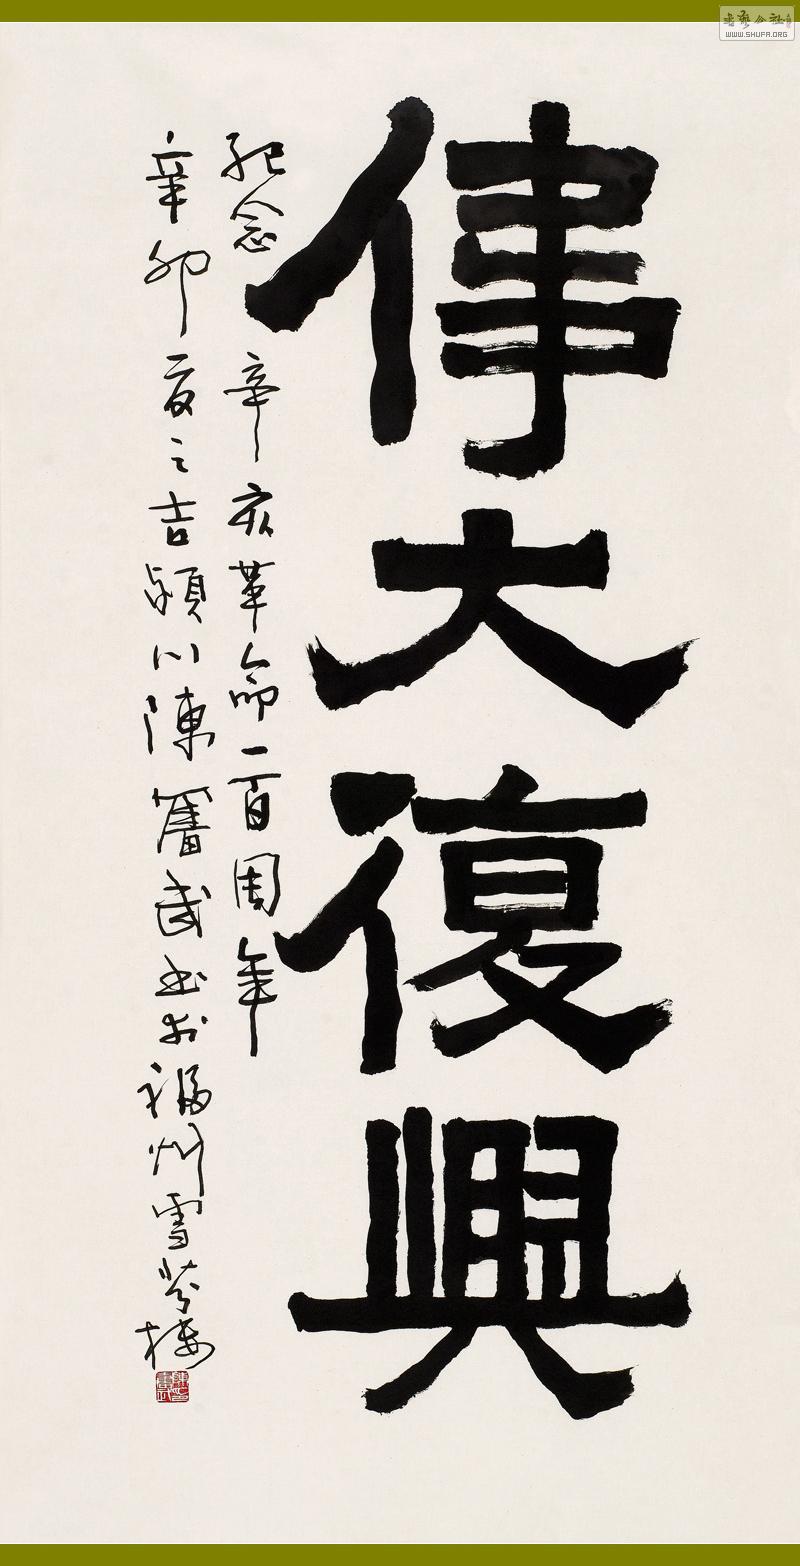 偉大復興
纪念 辛亥革命一百周年
辛卯夏之吉潁川陳奮武书於福州雪芬樓
书艺公社
WWW.SHUFA.ORG